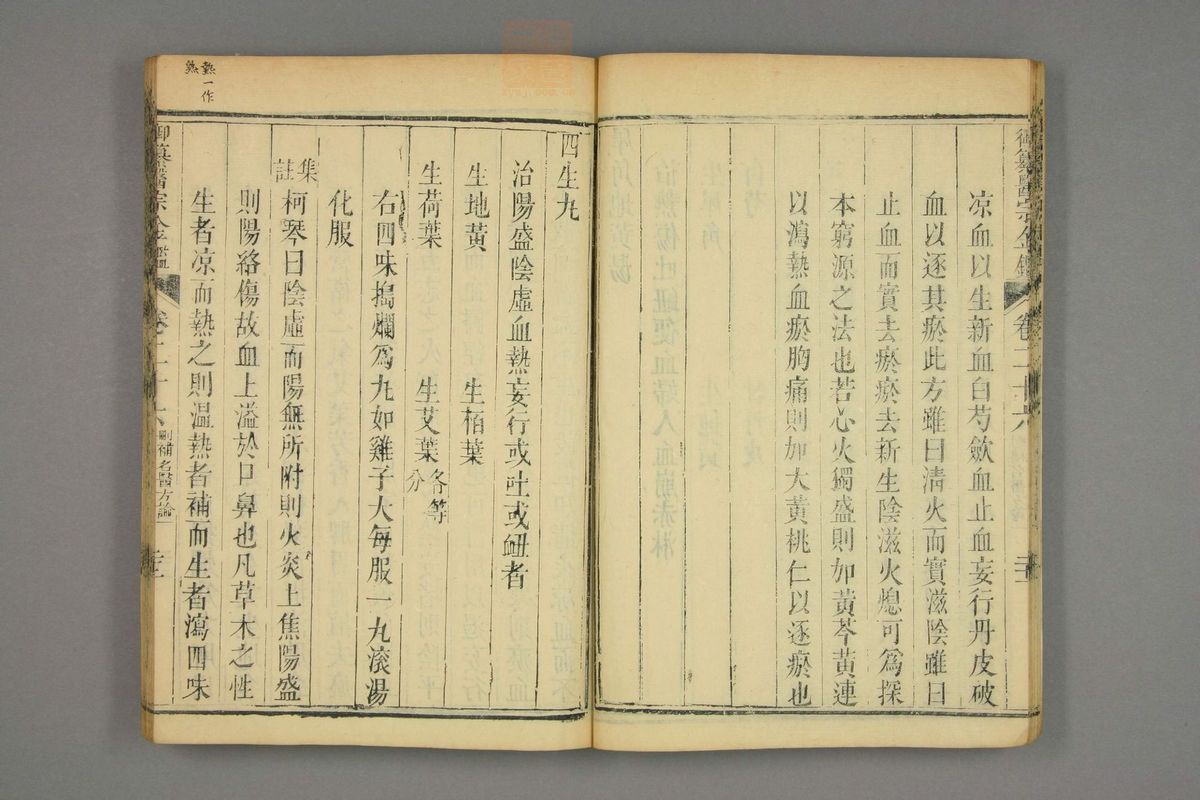 御纂醫宗金鑑 卷二十六
凉血以生新血白芍歛血止血妄行丹皮破
血以逐其瘀此方雖曰清火而實滋陰雖曰
止血而實去瘀瘀去新生陰滋火熄可爲探
本窮源之法也若心火獨盛則加黃芩黃連
以瀉熱血瘀胸痛則加大黃桃仁以逐瘀也
四生丸
治陽盛陰虛血熱妄行或吐或衄者
生地黃 生栢葉
生荷葉 生艾葉各等分
右四味搗爛爲丸如雞子大每服一丸滚湯
化服
集註柯琴曰陰虛而陽無所附則火炎上焦陽盛
則陽絡傷故血上溢於口鼻也凡草木之性
生者凉而熱之則温熱者補而生者瀉四味
御纂醫宗金鑑 卷二十六 刪補名醫方論
熱一作